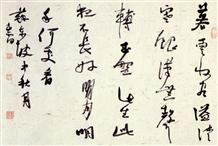 暮雲收盡溢清
寒銀漢無聲
轉玉盤此生此
夜不長好明月明
年何處看
蘇東坡中秋月